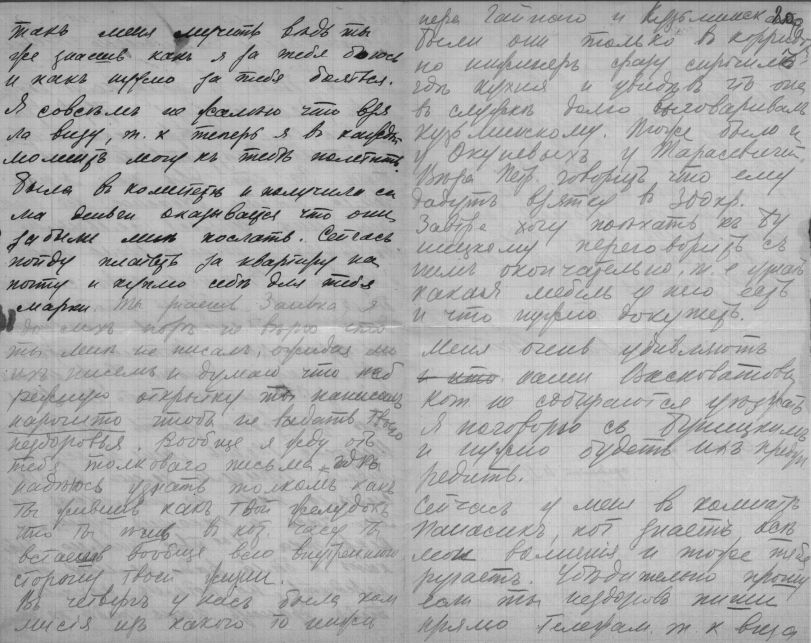 такъ меня мучить вѣдь ты
же знаешь какъ я за тебя боюсь
и какъ нужно за тебя бояться.
Я совсѣмъ не жалѣю что взя
ла визу, т. к теперь я въ каждый
моментъ могу къ тебѣ полетѣть.
Была въ комитетѣ и получила са
ма деньги оказывается что они
забыли мнѣ послать. Сейчасъ
пойду платить за квартиру на
почту и куплю себѣ для тебя
марки. Ты знаешь Заявка я
до сихъ поръ не вѣрю что
ты мнѣ не писалъ, ожидая мо
ихъ писемъ и думаю что
открытку ты написалъ
нарочито чтобъ не выдать твоего
нездоровья. Вообще я жду отъ
тебя толковаго письма, гдѣ
надѣюсь узнать толкомъ какъ
ты живешь какъ твой желудокъ
что ты въ кот. часу ты
встаешь вообще всю внутреннюю
сторону твоей жизни.
Въ четвергъ у насъ была ком
мисія изъ какого то
20
пера Гайного и Кузьминскаго
были они только въ корридорѣ
но инженеръ сразу спросилъ
гдѣ кухня и увидѣвъ что она
въ долго выговаривалъ
Кузьминскому. Тоже было и
у Окуневыхъ у Тарасевичъ.
Пер. говоритъ что ему
дадутъ взятку въ 300кр.
Завтра хочу поѣхать къ Бу
ницкому переговорить съ
нимъ окончательно, т. е узнать
какая мебель у него есть
и что нужно докупать.
Меня очень удивляютъ
и что наши Васковатовы
кот не собираются уѣзжать
Я поговорю съ Буницкимъ
и нужно будетъ ихъ преду
предить.
Сейчасъ у меня въ комнатѣ
Панасикъ, кот знаетъ всѣ
мои волненія и тоже тебя
ругаетъ. Убѣдительно прошу
если ты нездоровъ пиши
прямо телеграм. т. к виза